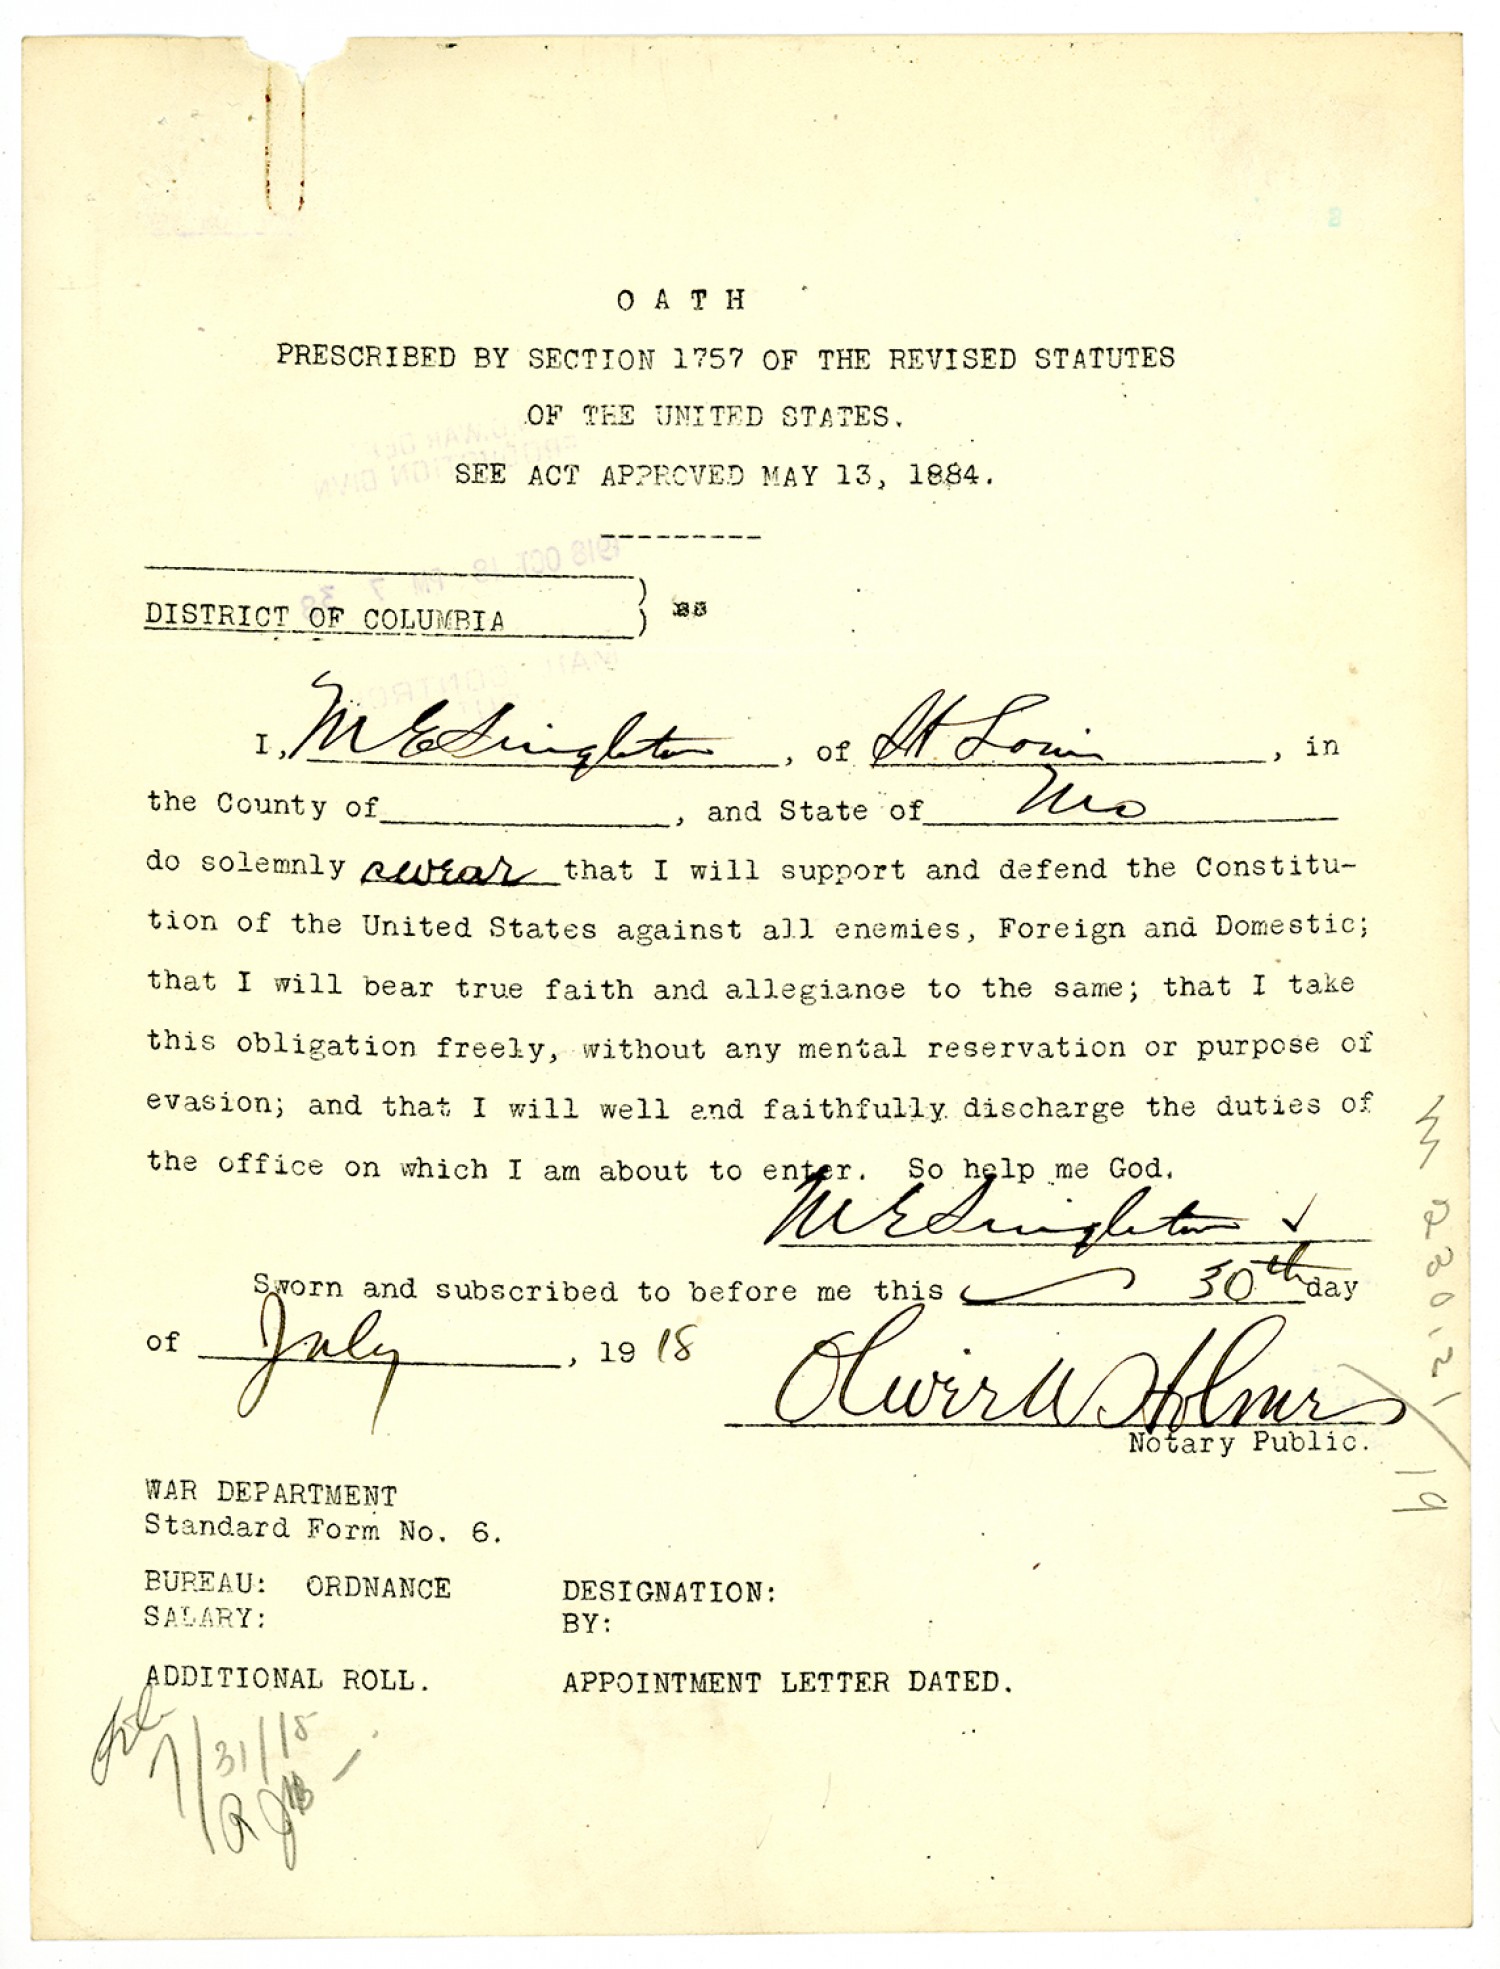 OATH
PRESCRIBED BY SECTION 1757 OF THE REVISED STATUTES
OF THE UNITED STATES.
SEE ACT APPROVED MAY 13, 1884.
---------
DISTRICT OF COLUMBIA } ss
I, M E Singleton, of St. Louis, in
the County of , and State of Mo
do solemnly swear that I will support and defend the Constitu-
tion of the United States against all enemies, Foreign and Domestic;
that I will bear true faith and allegiance to the same; that I take
this obligation freely, without any mental reservation or purpose of
evasion; and that I will well and faithfully discharge the duties of
the office on which I am about to enter. So help me God.
M E Singleton
Sworn and subscribed to before me this 30th day
of July, 1918
Oliver W. Holmes
Notary Public.
WAR DEPARTMENT
Standard Form No. 6.
BUREAU: ORDNANCE DESIGNATION:
SALARY: BY:
ADDITIONAL ROLL. APPOINTMENT LETTER DATED.
7/31/18